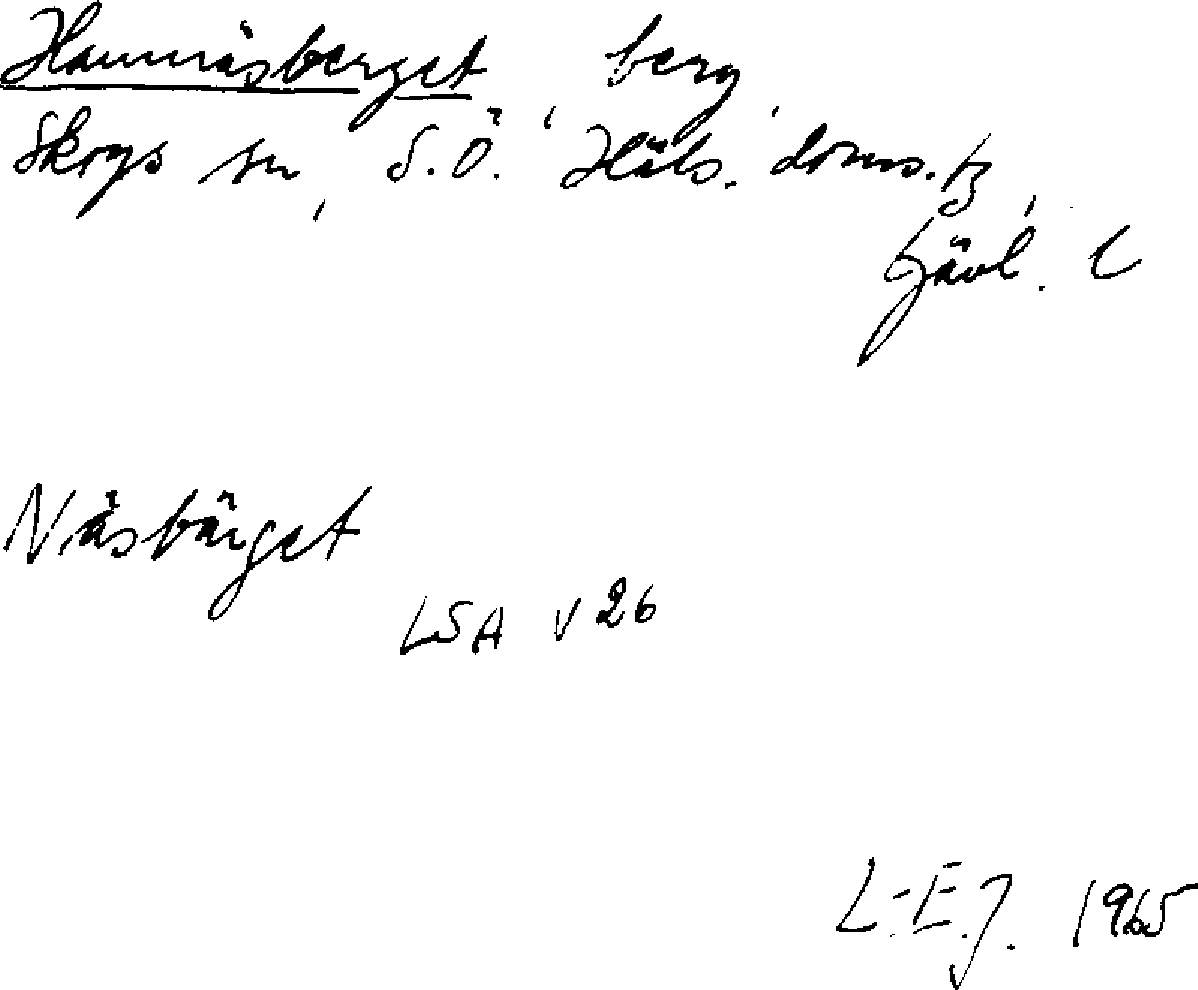 Hamnäsberget, berg,
Skogs sn, S.Ö. Häls. doms.,
Gävl. l
Näsbärget
LSA V 26
L-E.J. 1965